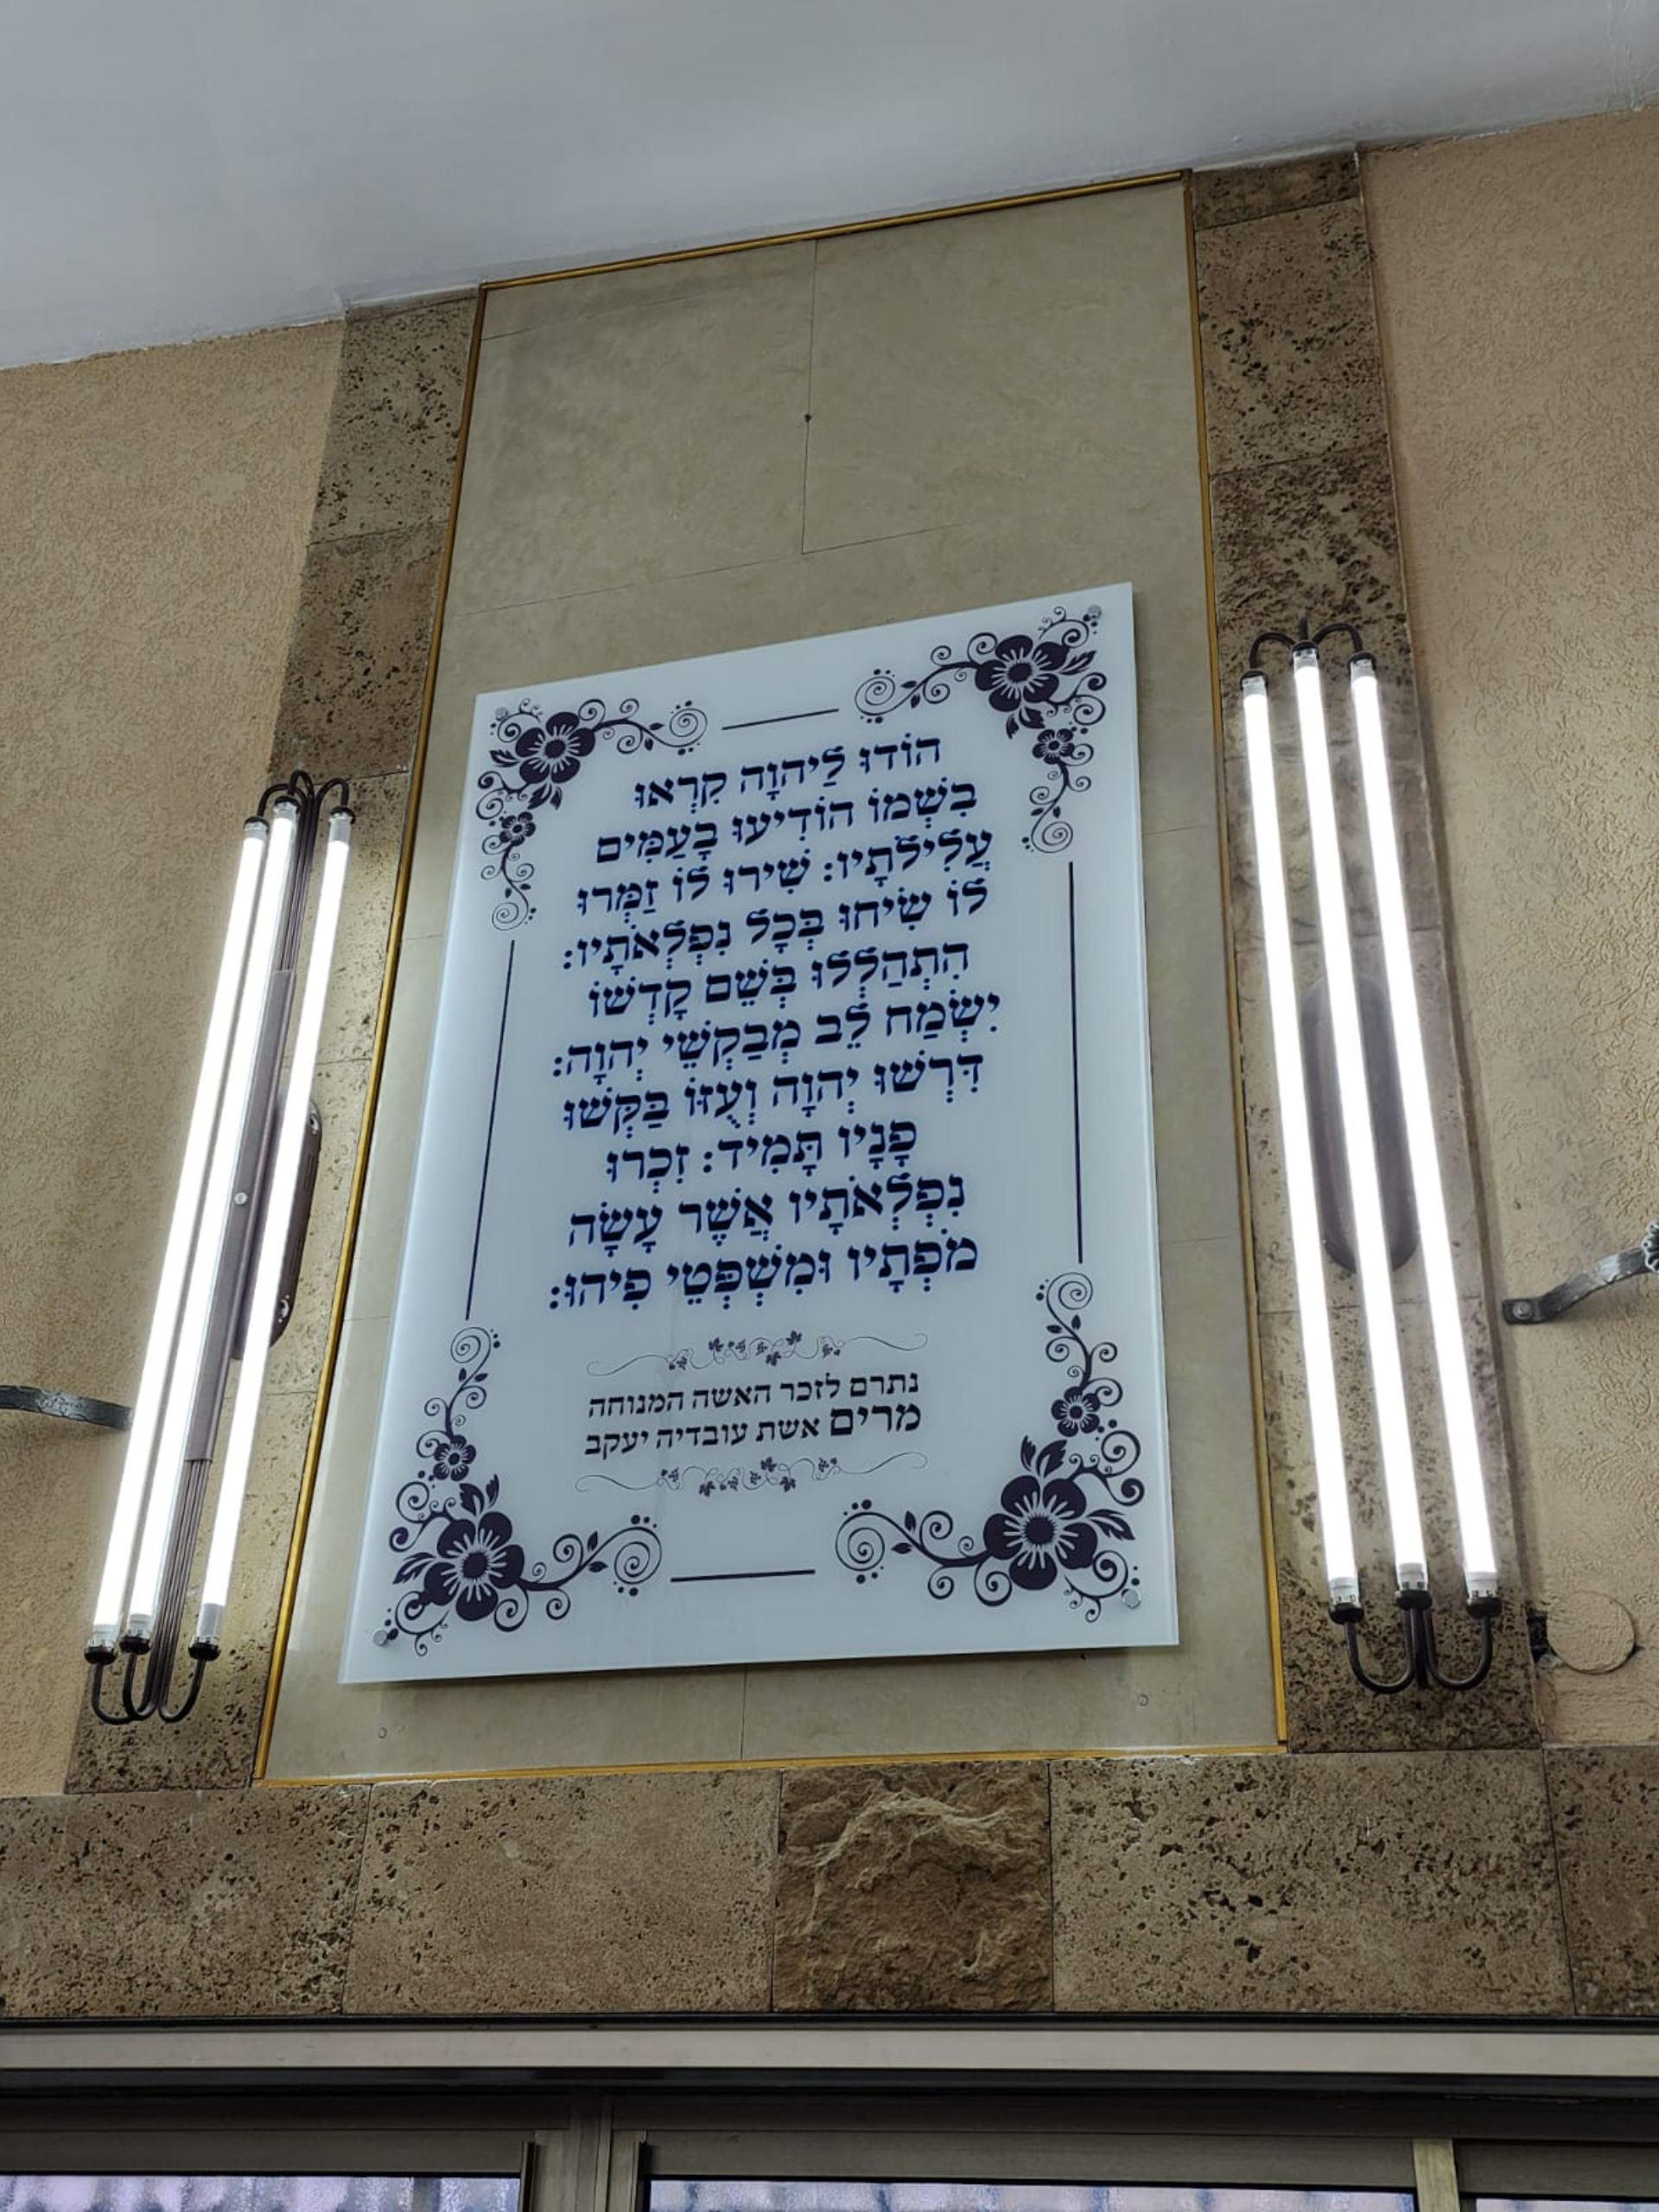 הוֹדוּ לַיהוָה קִרְאוּ
בִשְׁמוֹ הוֹדִיעוּ בָעַמִּים
עֲלִילֹתָיו: שִׁירוּ לוֹ זַמְּרוּ
לוֹ שִׂיחוּ בְּכָל נִפְלְאֹתָיו:
הִתְהַלְלוּ בְּשֵׁם קָדְשׁוֹ
יִשְׂמַח לֵב מְבַקְשֵׁי יְהוָה:
דִּרְשׁוּ יְהוָה וְעֻזּוֹ בַּקְּשׁוּ
פָנָיו תָּמִיד: זִכְרוּ
נִפְלְאֹתָיו אֲשֶׁר עָשָׂה
מֹפְתָיו וּמִשְׁפְּטֵי פִיהוּ:
נתרם לזכר האשה המנוחה
מרים אשת עובדיה יעקב